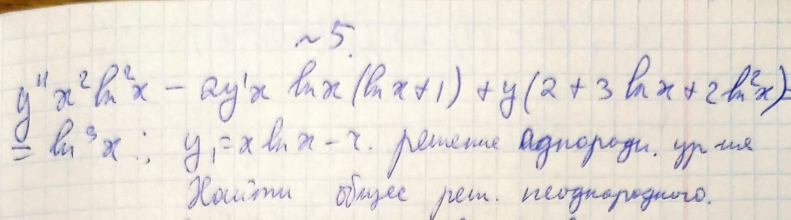 ~5.
y'' x² ln²x − 2y'x lnx (lnx+1) + y(2 + 3 lnx + 2 ln²x) =
= ln³x ; y₁ = x lnx − част. решение однородн. ур-ия
Найти общее реш. неоднородного.